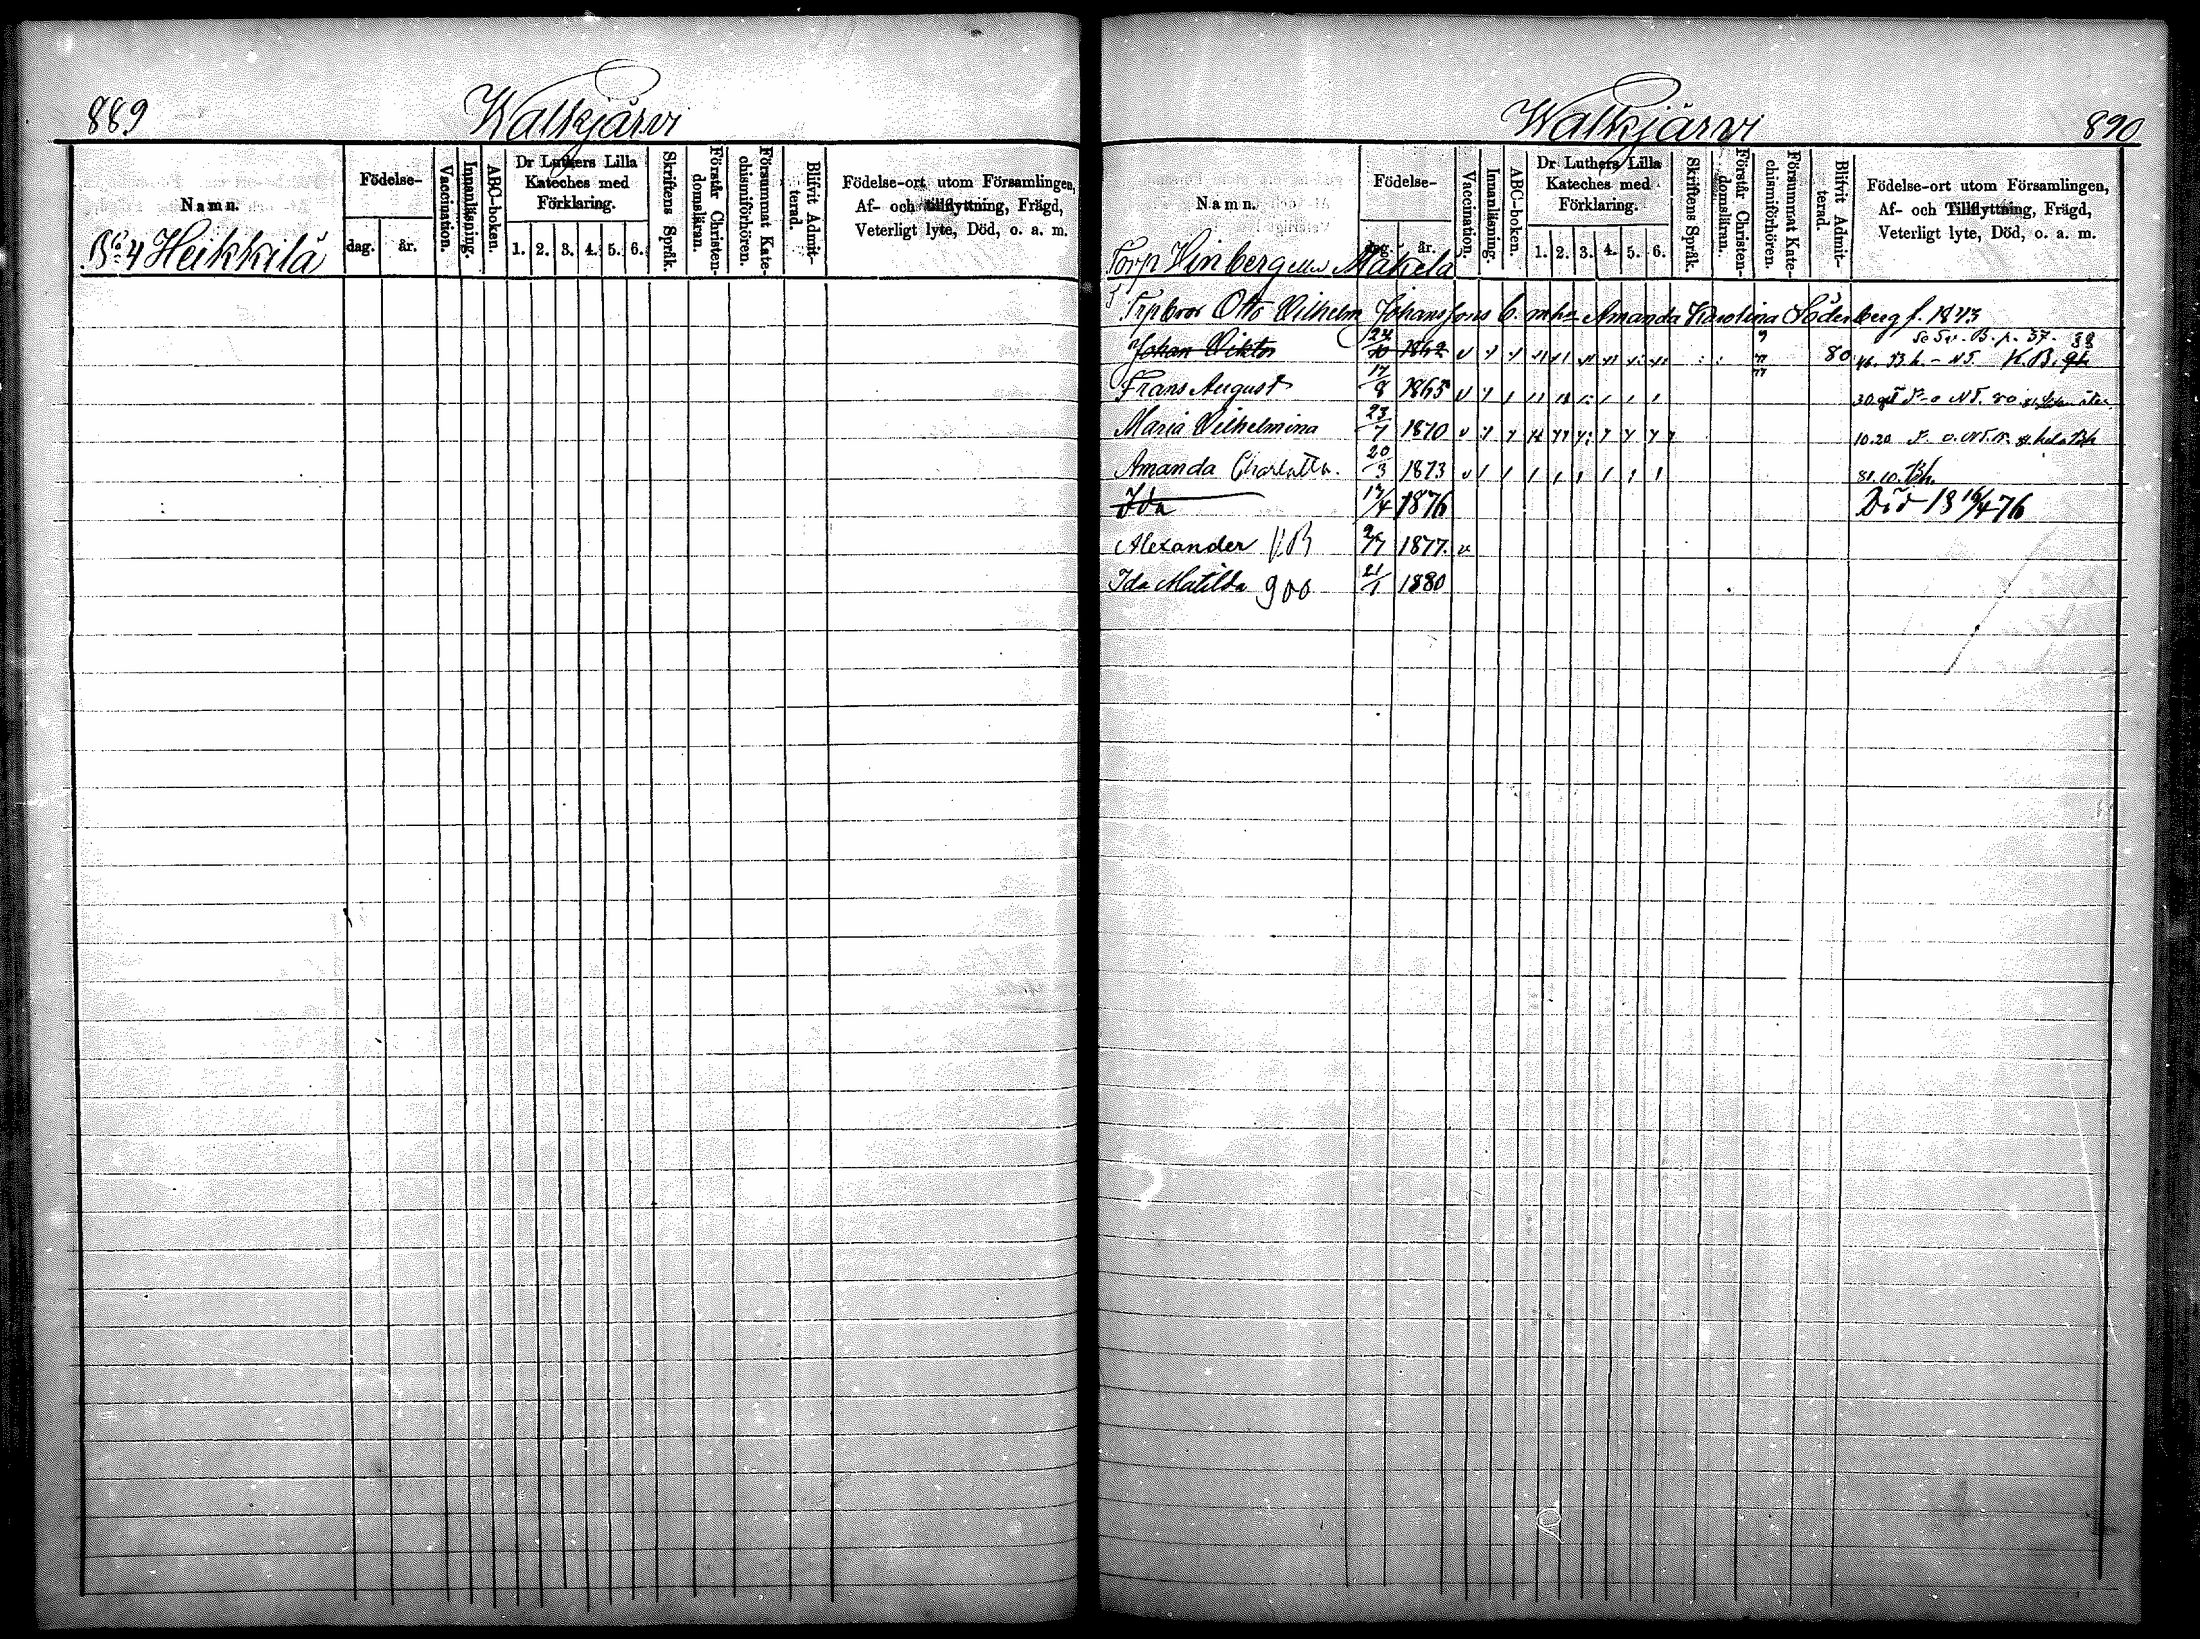 889
Walkjärvi
Namn.
Födelse-
dag. år.
Vaccination.
Innanläsning.
ABC-boken.
Dr Luthers Lilla
Kateches med
Förklaring.
1. 2. 3. 4. 5. 6.
Skriftens Språk.
Förstår Christen-
domsläran.
Försummat Kate-
chismiförhören.
Blifvit Admit-
terad.
Födelse-ort utom Församlingen,
Af- och tillflyttning, Frägd,
Veterligt lyte, Död, o. a. m.
No 4 Heikkilä
Walkjärvi
890
Namn.
Födelse-
dag. år.
Vaccination.
Innanläsning.
ABC-boken.
Dr Luthers Lilla
Kateches med
Förklaring.
1. 2. 3. 4. 5. 6.
Skriftens Språk.
Förstår Christen-
domsläran.
Försummat Kate-
chismiförhören.
Blifvit Admit-
terad.
Födelse-ort utom Församlingen,
Af- och Tillflyttning, Frägd,
Veterligt lyte, Död, o. a. m.
Torp Vinberg Mäkelä
Otto Vilhelm Johanssons b. m. h. Amanda Karolina Söderberg f. 1843
Johan Viktor 24/10 1862 80 K.B.
Frans August 17/8 1865
Maria Vilhelmina 23/7 1870
Amanda Charlotta. 20/3 1873
Ida 1876 Död 18 16/4 76
Alexander K.B 1877.
Ida Matilda 900 21/1 1880